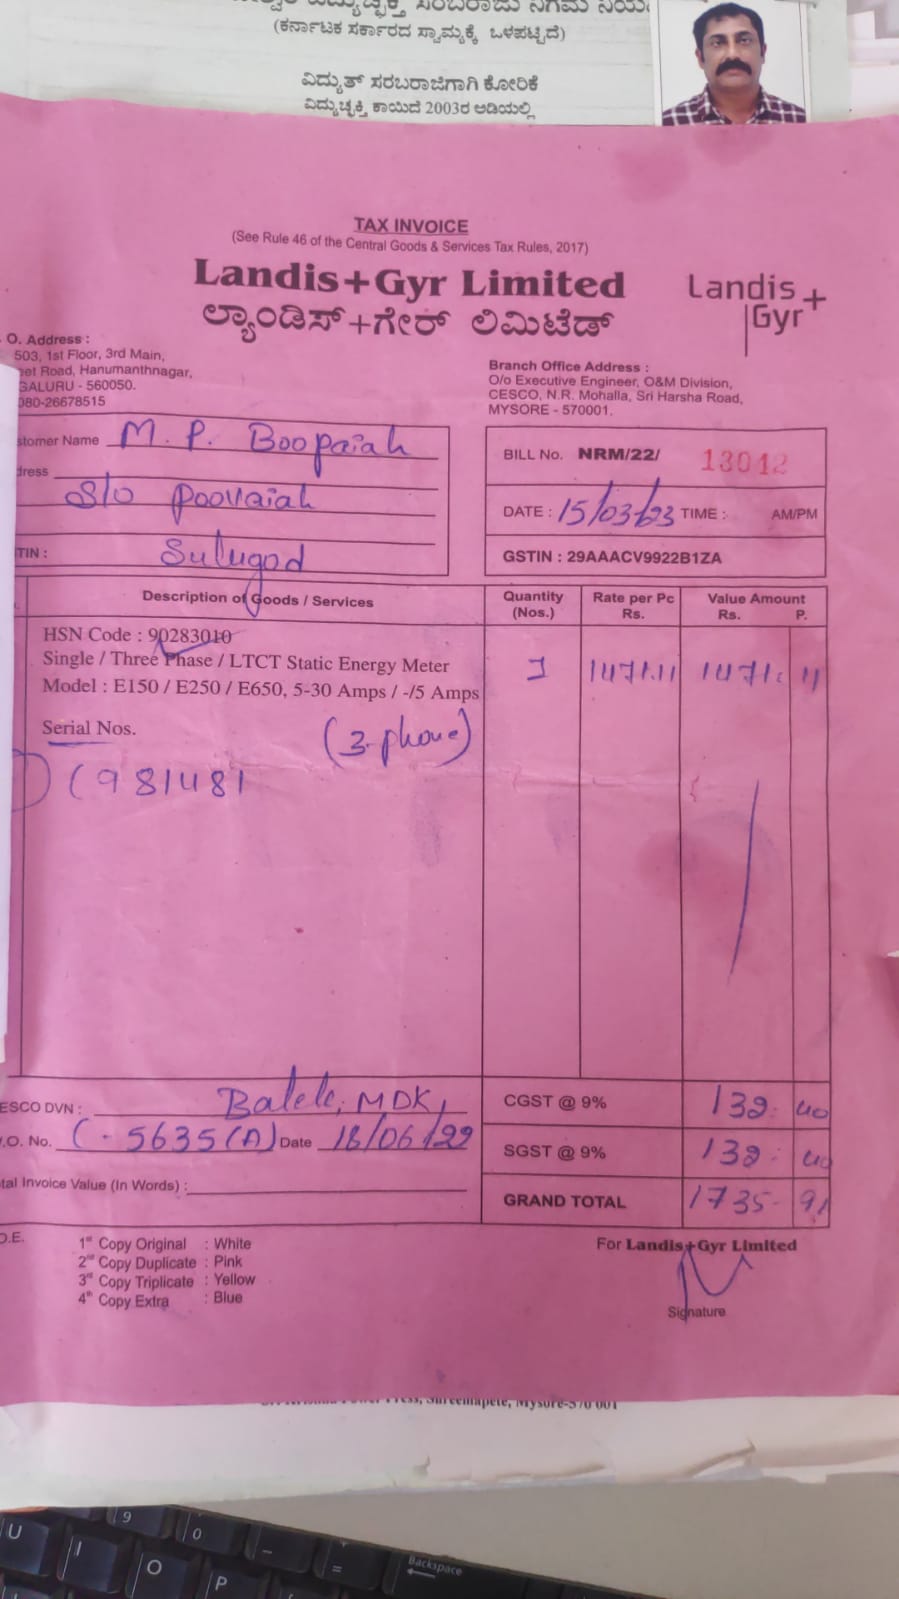 (ಕರ್ನಾಟಕ ಸರ್ಕಾರದ ಸ್ವಾಮ್ಯಕ್ಕೆ ಒಳಪಟ್ಟಿದೆ)
ವಿದ್ಯುತ್ ಸರಬರಾಜಿಗಾಗಿ ಕೋರಿಕೆ
ವಿದ್ಯುಚ್ಛಕ್ತಿ ಕಾಯಿದೆ 2003ರ ಅಡಿಯಲ್ಲಿ
TAX INVOICE
(See Rule 46 of the Central Goods & Services Tax Rules, 2017)
Landis+Gyr Limited
Landis+
Gyr
ಲ್ಯಾಂಡಿಸ್+ಗೇರ್ ಲಿಮಿಟೆಡ್
O. Address :
503, 1st Floor, 3rd Main,
et Road, Hanumanthnagar,
GALURU - 560050.
080-26678515
Branch Office Address :
O/o Executive Engineer, O&M Division,
CESCO, N.R. Mohalla, Sri Harsha Road,
MYSORE - 570001.
stomer Name M. P. Boopaiah
dress
S/o Poovaiah
TIN : Sulugod
BILL No. NRM/22/ 13042
DATE : 15/03/23 TIME : AM/PM
GSTIN : 29AAACV9922B1ZA
Description of Goods / Services Quantity (Nos.) Rate per Pc Rs. Value Amount Rs. P.
HSN Code : 90283010
Single / Three Phase / LTCT Static Energy Meter 1 1471.11 1471. 11
Model : E150 / E250 / E650, 5-30 Amps / -/5 Amps
Serial Nos.
(3-phase)
(981481
ESCO DVN : Balele, MDK,
.O. No. C-5635(A) Date 18/06/22
tal Invoice Value (In Words) :
CGST @ 9% 132. 40
SGST @ 9% 132. 40
GRAND TOTAL 1735- 91
O.E.
1st Copy Original : White
2nd Copy Duplicate : Pink
3rd Copy Triplicate : Yellow
4th Copy Extra : Blue
For Landis+Gyr Limited
Signature
Mysore-570 001
U
I
O
P
9
0
-
=
Backspace